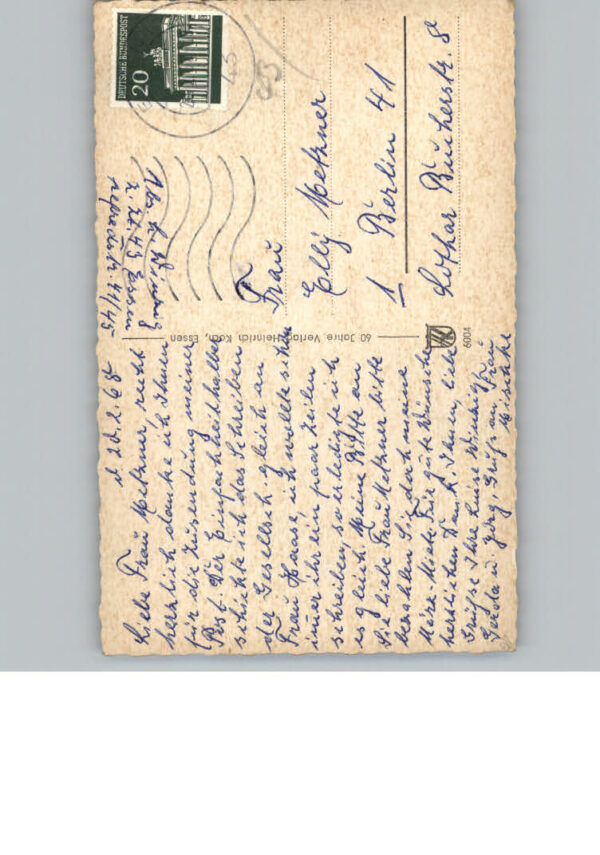 DEUTSCHE BUNDESPOST
20
Abs. L. Winzig
z. Zt. 43 Essen
41/45
Frau
Elly Metzner
1 Berlin 41
Lothar Bucherstr. 8
60 Jahre Verlag Heinrich Koch, Essen
6004
Liebe Frau Metzner, recht
herzlich danke ich Ihnen
für die Zusendung meiner
Post. Der Einfachheithalber
schickte ich das Schreiben
der Gesellsch. gleich an
Frau Haase, ich wollte schon
immer ihr ein paar Zeilen
schreiben, so erledigte ich
es gleich. Meine Bitte an
Sie liebe Frau Metzner bitte
bezahlen Sie doch meine
März Miete. Für gute Wünsche
herzlichen Dank Ihnen, liebe
Grüße Ihre Luise Winzig
Gerda u. Jörg, Grüße an Frau